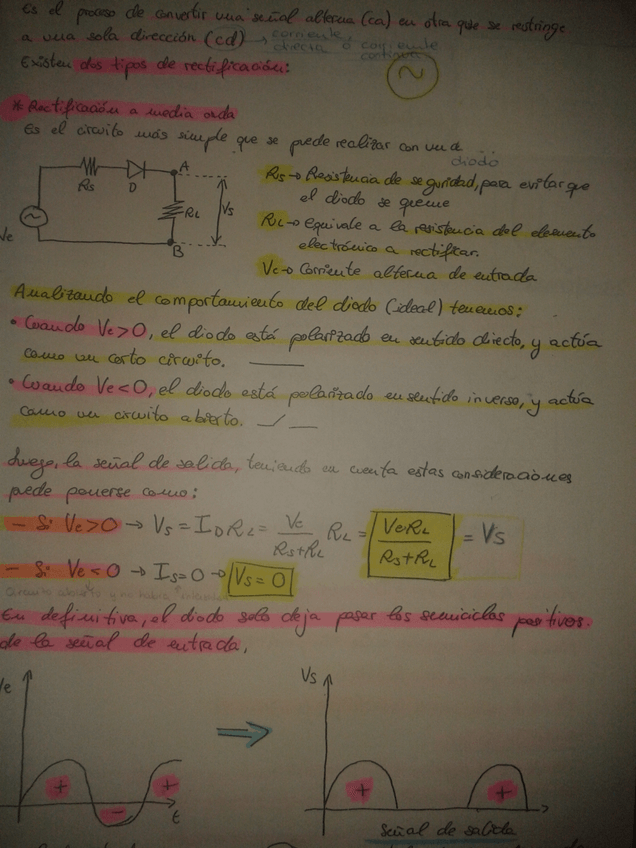 Es el proceso de convertir una señal alterna (ca) en otra que se restringe
a una sola dirección (cd) → corriente
directa o corriente
continua
Existen dos tipos de rectificación:
* Rectificación a media onda
Es el circuito más simple que se puede realizar con un
diodo
Rs
D
A
RL
Vs
B
Ve
Rs → Resistencia de seguridad, para evitar que
el diodo se queme
RL → equivale a la resistencia del elemento
electrónico a rectificar.
Ve → Corriente alterna de entrada
Analizando el comportamiento del diodo (ideal) tenemos:
• Cuando Ve>0, el diodo está polarizado en sentido directo, y actúa
como un corto circuito.
• Cuando Ve<0, el diodo está polarizado en sentido inverso, y actúa
como un circuito abierto.
Luego, la señal de salida, teniendo en cuenta estas consideraciones
puede ponerse como:
- Si Ve>0 → Vs = ID RL = Ve/(Rs+RL) RL = Ve RL/(Rs+RL) = Vs
- Si Ve<0 → Is=0 → Vs=0
Circuito abierto y no habrá
En definitiva, el diodo solo deja pasar los semiciclos positivos
de la señal de entrada.
Ve
+
-
+
t
Vs
+
+
señal de salida